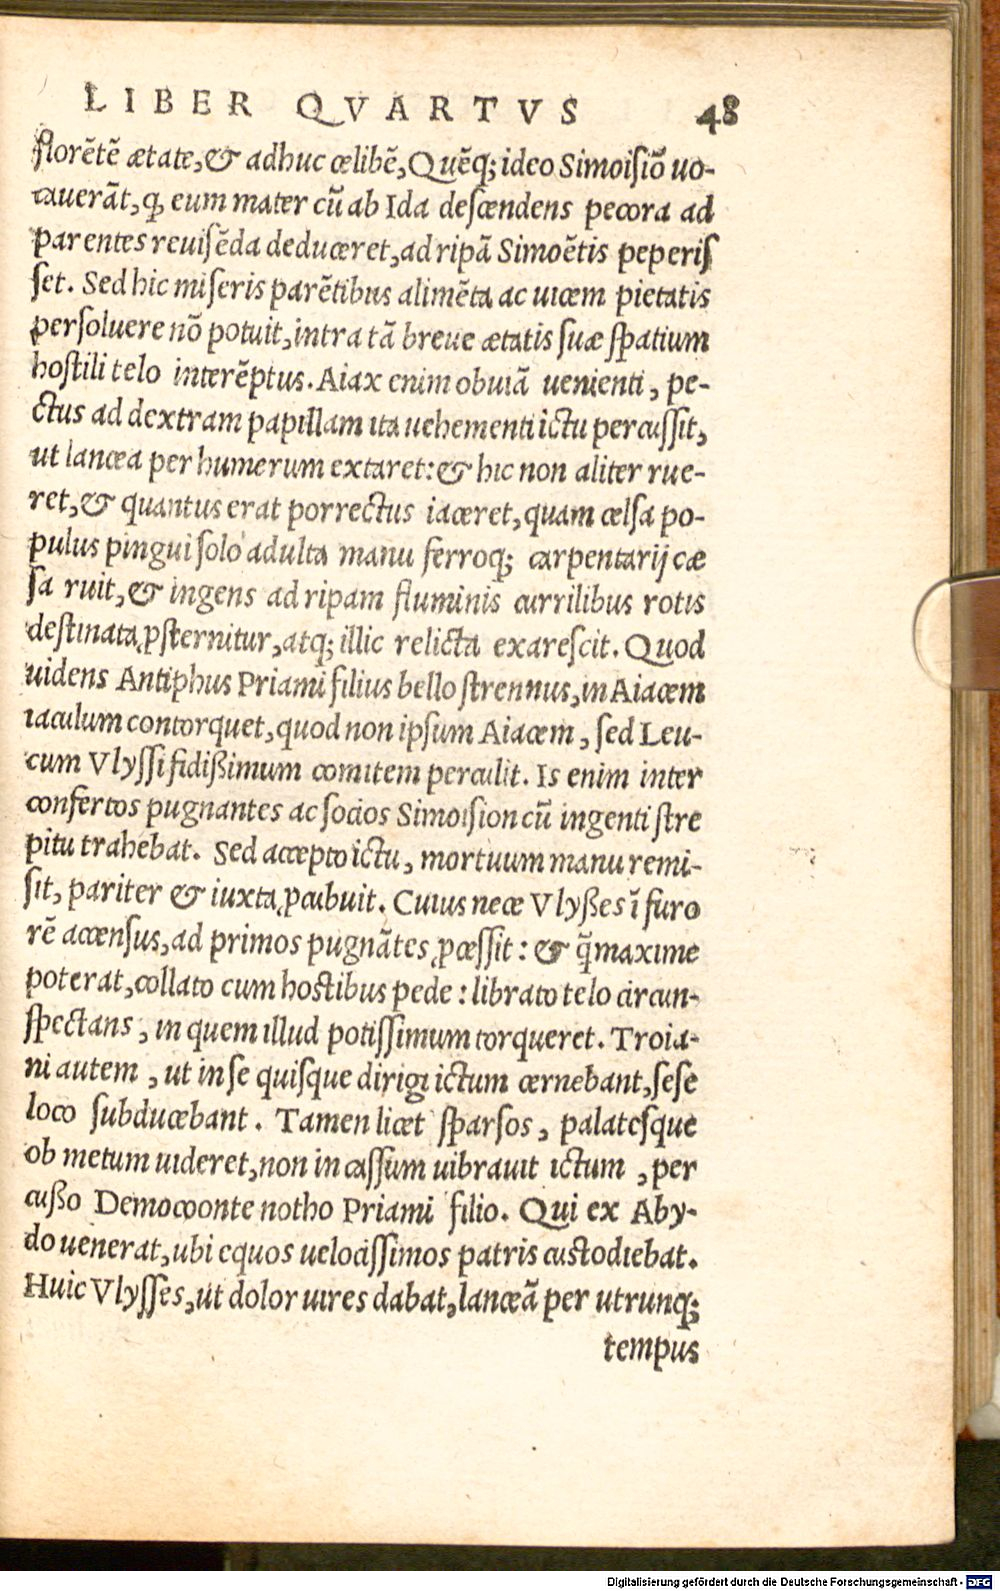 LIBER QVARTVS 48
florētē ætate,& adhuc cœlibē,Quēq; ideo Simoiſiō uo-
cauerāt,ꝙ eum mater cū ab Ida deſcendens pecora ad
parentes reuiſēda deduceret,ad ripā Simoētis peperiſ
ſet. Sed hic miſeris parētibus alimēta ac uicem pietatis
perſoluere nō potuit,intra tā breue ætatis ſuæ ſpatium
hoſtili telo interēptus. Aiax enim obuiā uenienti, pe-
ctus ad dextram papillam ita uehementi ictu percuſſit,
ut lancea per humerum extaret:& hic non aliter rue-
ret,& quantus erat porrectus iaceret,quam celſa po-
pulus pingui ſolo adulta manu ferroq; carpentarij cæ
ſa ruit,& ingens ad ripam fluminis currilibus rotis
deſtinata ꝓſternitur,atq; illic relicta exareſcit. Quod
uidens Antiphus Priami filius bello ſtrennus,in Aiacem
iaculum contorquet,quod non ipſum Aiacem, ſed Leu-
cum Vlyſſi fidißimum comitem perculit. Is enim inter
confertos pugnantes ac ſocios Simoiſion cū ingenti ſtre
pitu trahebat. Sed accepto ictu, mortuum manu remi-
ſit, pariter & iuxta ꝓcubuit. Cuius nece Vlyßes ī furo
rē accenſus,ad primos pugnātes ꝓceſſit: & q̄ maxime
poterat,collato cum hoſtibus pede: librato telo circun-
ſpectans, in quem illud potiſſimum torqueret. Troia-
ni autem, ut in ſe quiſque dirigi ictum cernebant,ſeſe
loco ſubducebant. Tamen licet ſparſos, palateſque
ob metum uideret,non in caſſum uibrauit ictum, per
cußo Democoonte notho Priami filio. Qui ex Aby-
do uenerat,ubi equos uelociſſimos patris cuſtodiebat.
Huic Vlyſſes,ut dolor uires dabat,lanceā per utrunq;
tempus
Digitalisierung gefördert durch die Deutsche Forschungsgemeinschaft - DFG